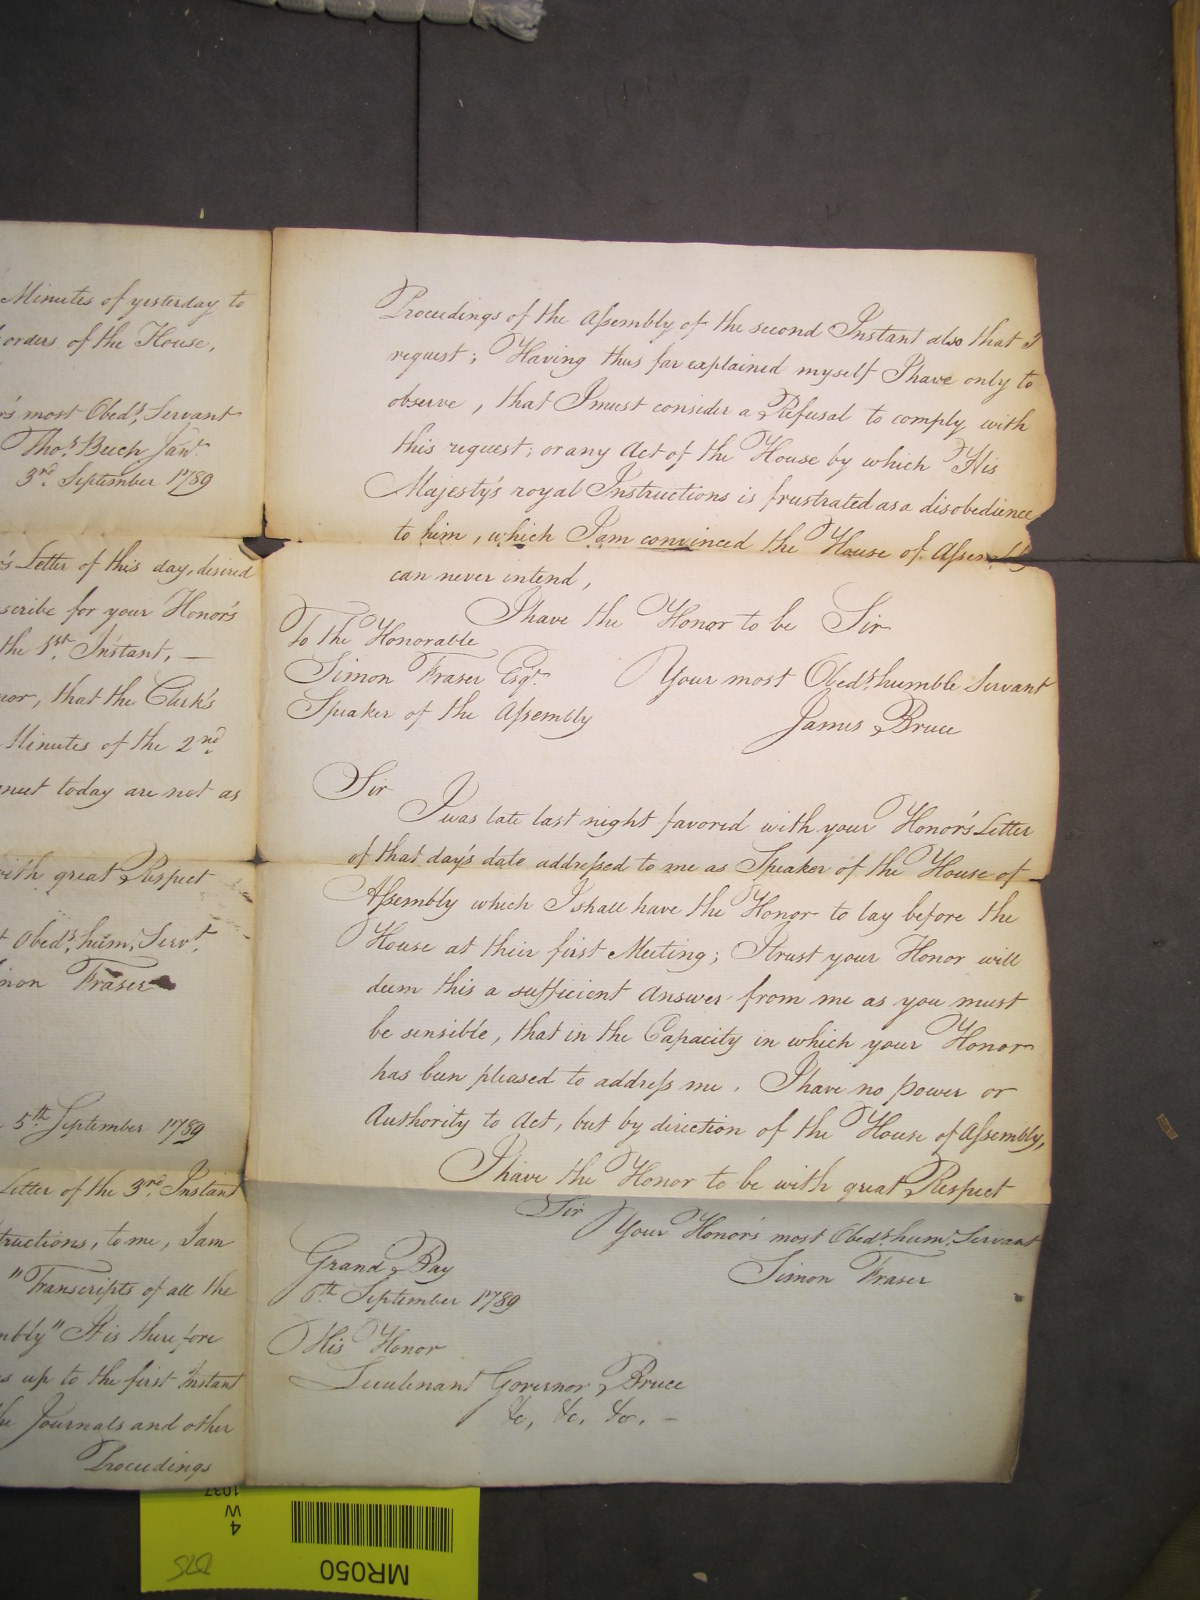 Minutes of yesterday to
orders of the House,
most Obedt. Servant
Thos. Beech Junr.
3rd. September 1789
Letter of this day, desired
scribe for your Honor's
the 1st. Instant, —
that the Clerk's
Minutes of the 2nd
meet today are not as
with great Respect
Obedt. hum. Servt.
Simon Fraser
5th September 1789
Letter of the 3rd. Instant
to me, I am
"Transcripts of all the
" It is therefore
up to the first Instant
the Journals and other
Proceedings
Proceedings of the Assembly of the second Instant also that I
request; Having thus far explained myself I have only to
observe, that I must consider a Refusal to comply with
this request; or any Act of the House by which His
Majesty's royal Instructions is frustrated as a disobedience
to him, which I am convinced the House of Assembly
can never intend,
I have the Honor to be Sir
To The Honorable
Simon Fraser Esqr.
Speaker of the Assembly
Your most Obedt. humble Servant
James Bruce
Sir
I was late last night favored with your Honor's Letter
of that day's date addressed to me as Speaker of the House of
Assembly which I shall have the Honor to lay before the
House at their first Meeting; I trust your Honor will
deem this a sufficient Answer from me as you must
be sensible, that in the Capacity in which your Honor
has been pleased to address me. I have no power or
Authority to Act, but by direction of the House of Assembly,
I have the Honor to be with great Respect
Sir
Your Honor's most Obedt. hum. Servant
Simon Fraser
Grand Bay
6th September 1789
His Honor
Lieutenant Governor Bruce
&c, &c. &c. —
1037
W
4
MR050